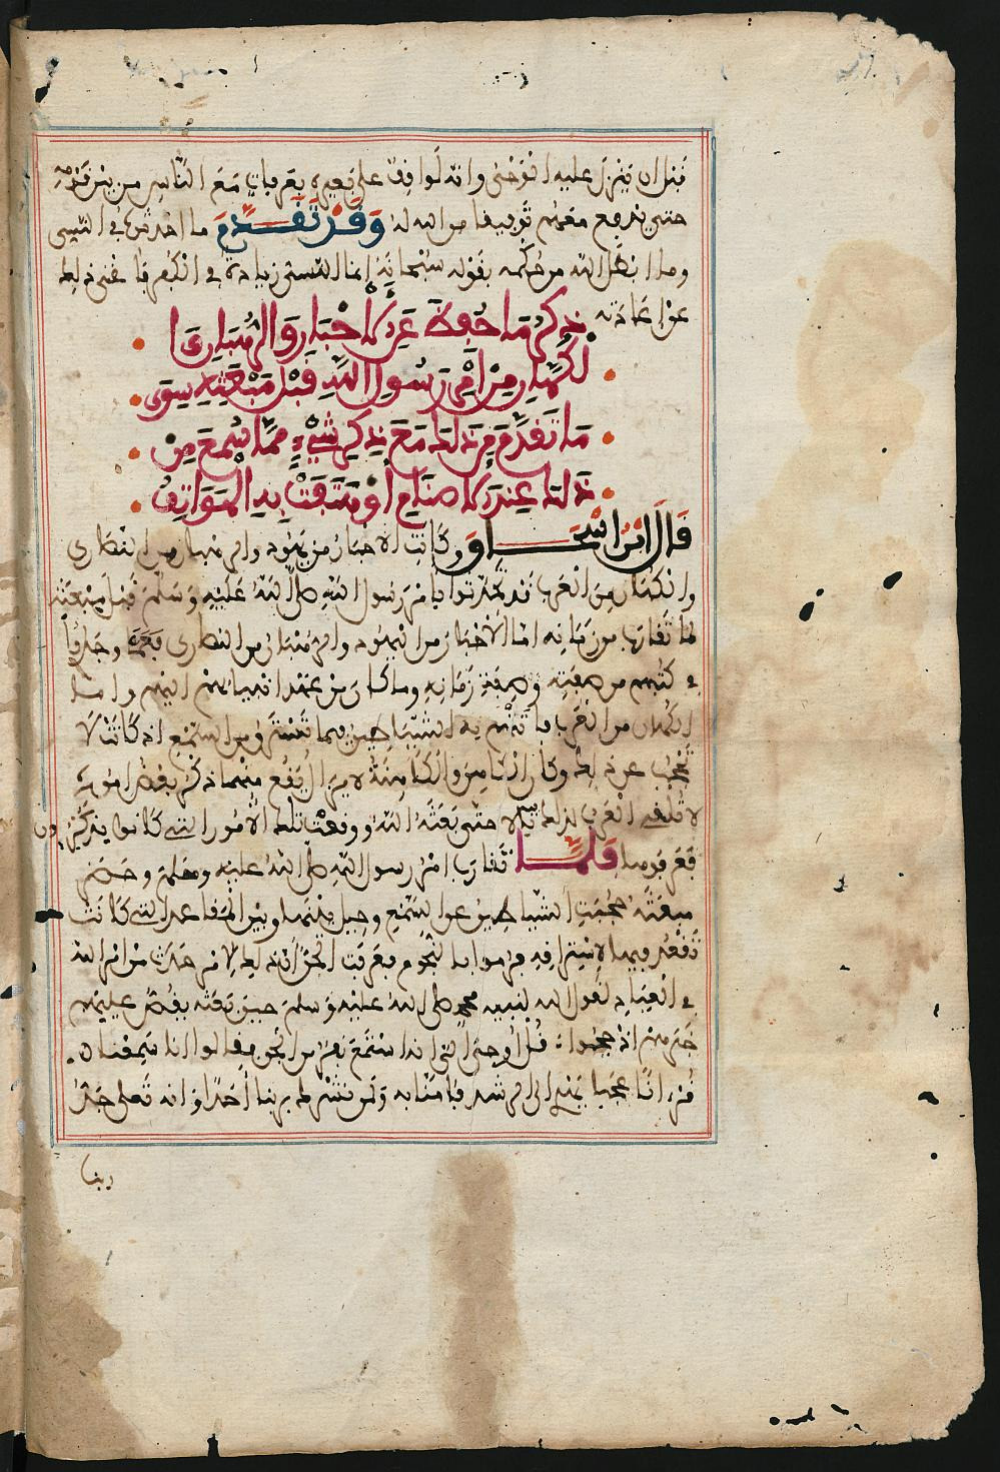 قبل ان ينزل عليه الوحي وانه لواقف على بعير له بعرفات مع الناس من بين قومه
حتى يدفع معهم توفيقا من الله له وقد تقدم ما احدثوا في النسي
وما ابطل الله من حكمه بقوله سبحانه إنما النسي زيادة في الكفر فاغنى ذلك
عن اعادته
ذكر ما حفظ عن الأحبار والرهبان و
الكهان من أمر رسول الله قبل مبعثه سوى
ما تقدم من ذلك مع ذكر شيء مما سمع من
ذلك عند الأصنام أو هتفت به الهواتف
قال ابن اسحاق وكانت الاحبار من يهود والرهبان من النصارى
والكهان من العرب قد تحدثوا بأمر رسول الله صلى الله عليه وسلم قبل مبعثه
لما تقارب من زمانه اما الأحبار من اليهود والرهبان من النصارى فعما وجدوا
في كتبهم من صفته وصفة زمانه وما كان من عهد انبيائهم اليهم واما
الكهان من العرب فاتتهم به الشياطين فيما تسترق من السمع اذ كانت لا
تحجب عن ذلك وكان الكاهن والكاهنة لا يزال يقع منهما ذكر بعض اموره
لا تلقي العرب لذلك بالا حتى بعثه الله ووقعت تلك الأمور التي كانوا يذكرون
فعرفوها فلما تقارب امر رسول الله صلى الله عليه وسلم وحضر
مبعثه حجبت الشياطين عن السمع وحيل بينها وبين المقاعد التي كانت
تقعد فيها لاستراقه فرموا بالنجوم فعرفت الجن أن ذلك لأمر حدث من امر الله
في العباد يقول الله لنبيه محمد صلى الله عليه وسلم حين بعثه يقص عليه
خبرهم اذ حجبوا قل أوحي الي انه استمع نفر من الجن فقالوا انا سمعنا
قرءانا عجبا يهدي الى الرشد فـامنا به ولن نشرك بربنا أحدا وانه تعلى جد
ربنا